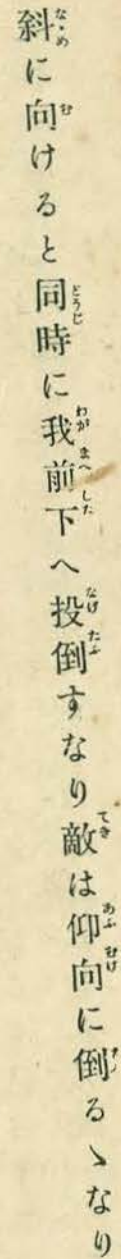 斜に向けると同時に我前下へ投倒すなり敵は仰向に倒るゝなり